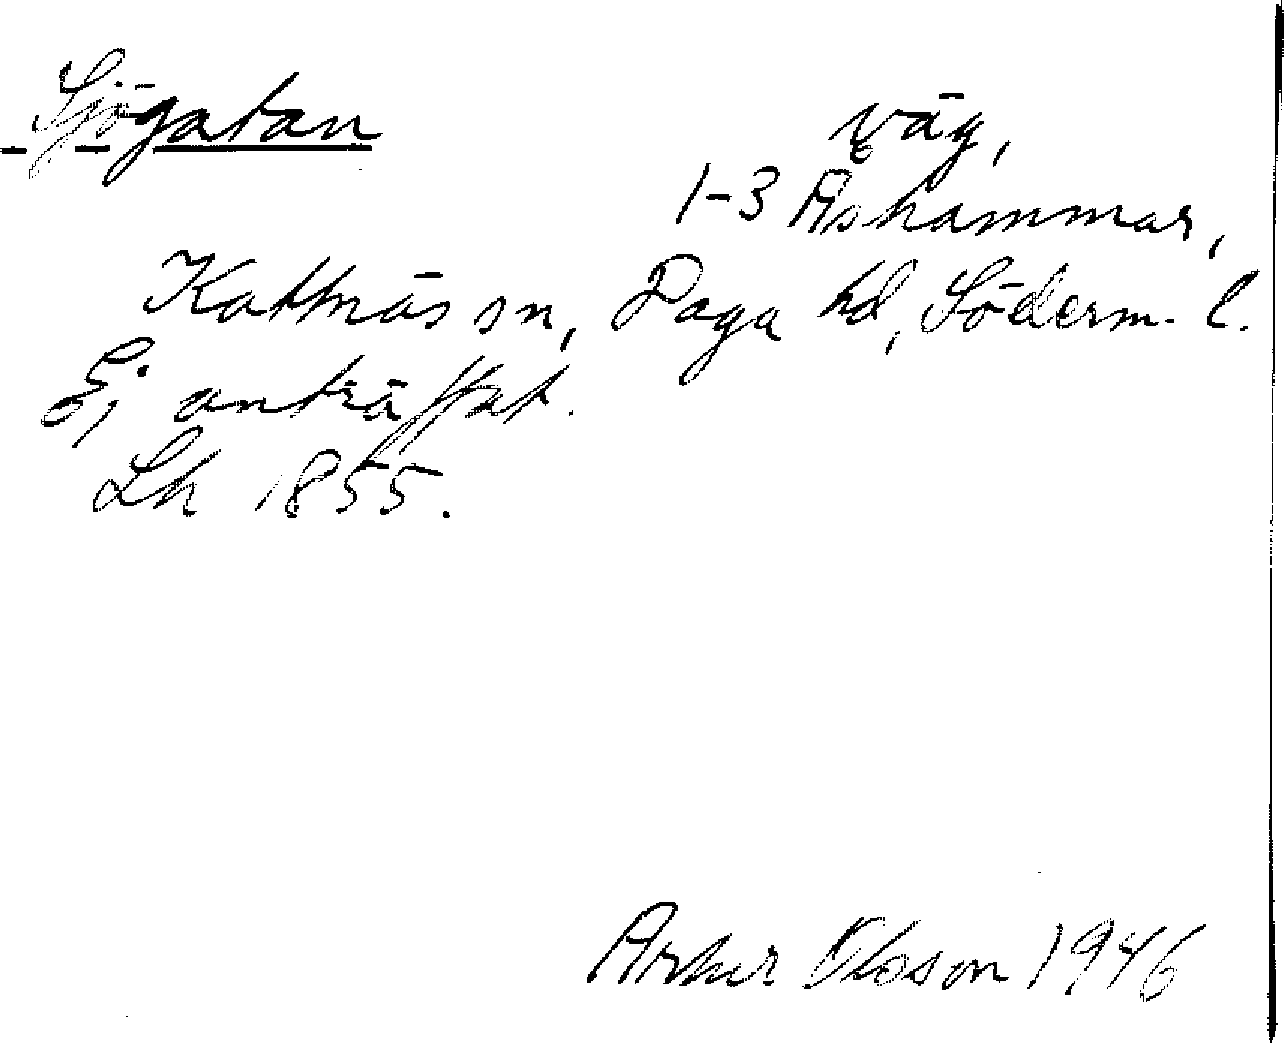 Sjögatan
väg,
1-3 Åshammar,
Kattnäs sn, Daga hd, Söderm. l.
Ej anträffat.
Lh 1855.
Artur Oloson 1946